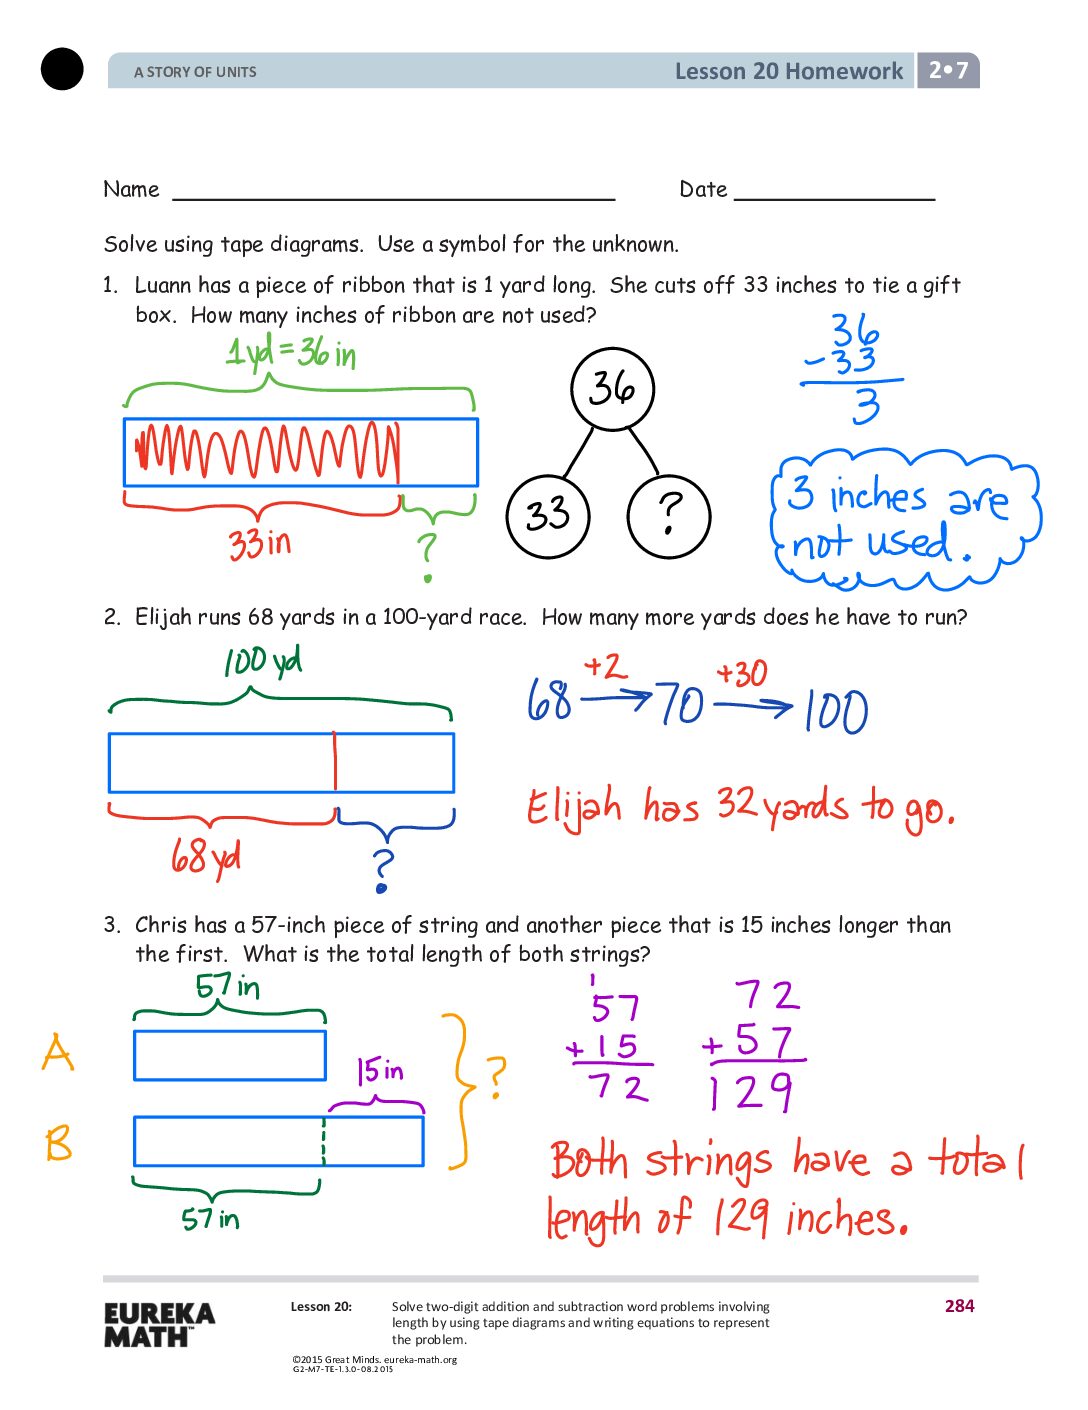 A STORY OF UNITS
Lesson 20 Homework 2•7
Name
Date
Solve using tape diagrams. Use a symbol for the unknown.
1. Luann has a piece of ribbon that is 1 yard long. She cuts off 33 inches to tie a gift
box. How many inches of ribbon are not used?
1yd = 36 in
33 in
?
36
33
?
36
-33
3
3 inches are
not used.
2. Elijah runs 68 yards in a 100-yard race. How many more yards does he have to run?
100 yd
68 yd
?
+2 +30
68 → 70 → 100
Elijah has 32 yards to go.
3. Chris has a 57-inch piece of string and another piece that is 15 inches longer than
the first. What is the total length of both strings?
57 in
A
15 in
?
B
57 in
1
57
+15
72
72
+57
129
Both strings have a total
length of 129 inches.
EUREKA
MATH™
Lesson 20:
Solve two-digit addition and subtraction word problems involving
length by using tape diagrams and writing equations to represent
the problem.
284
©2015 Great Minds. eureka-math.org
G2-M7-TE-1.3.0-08.2015